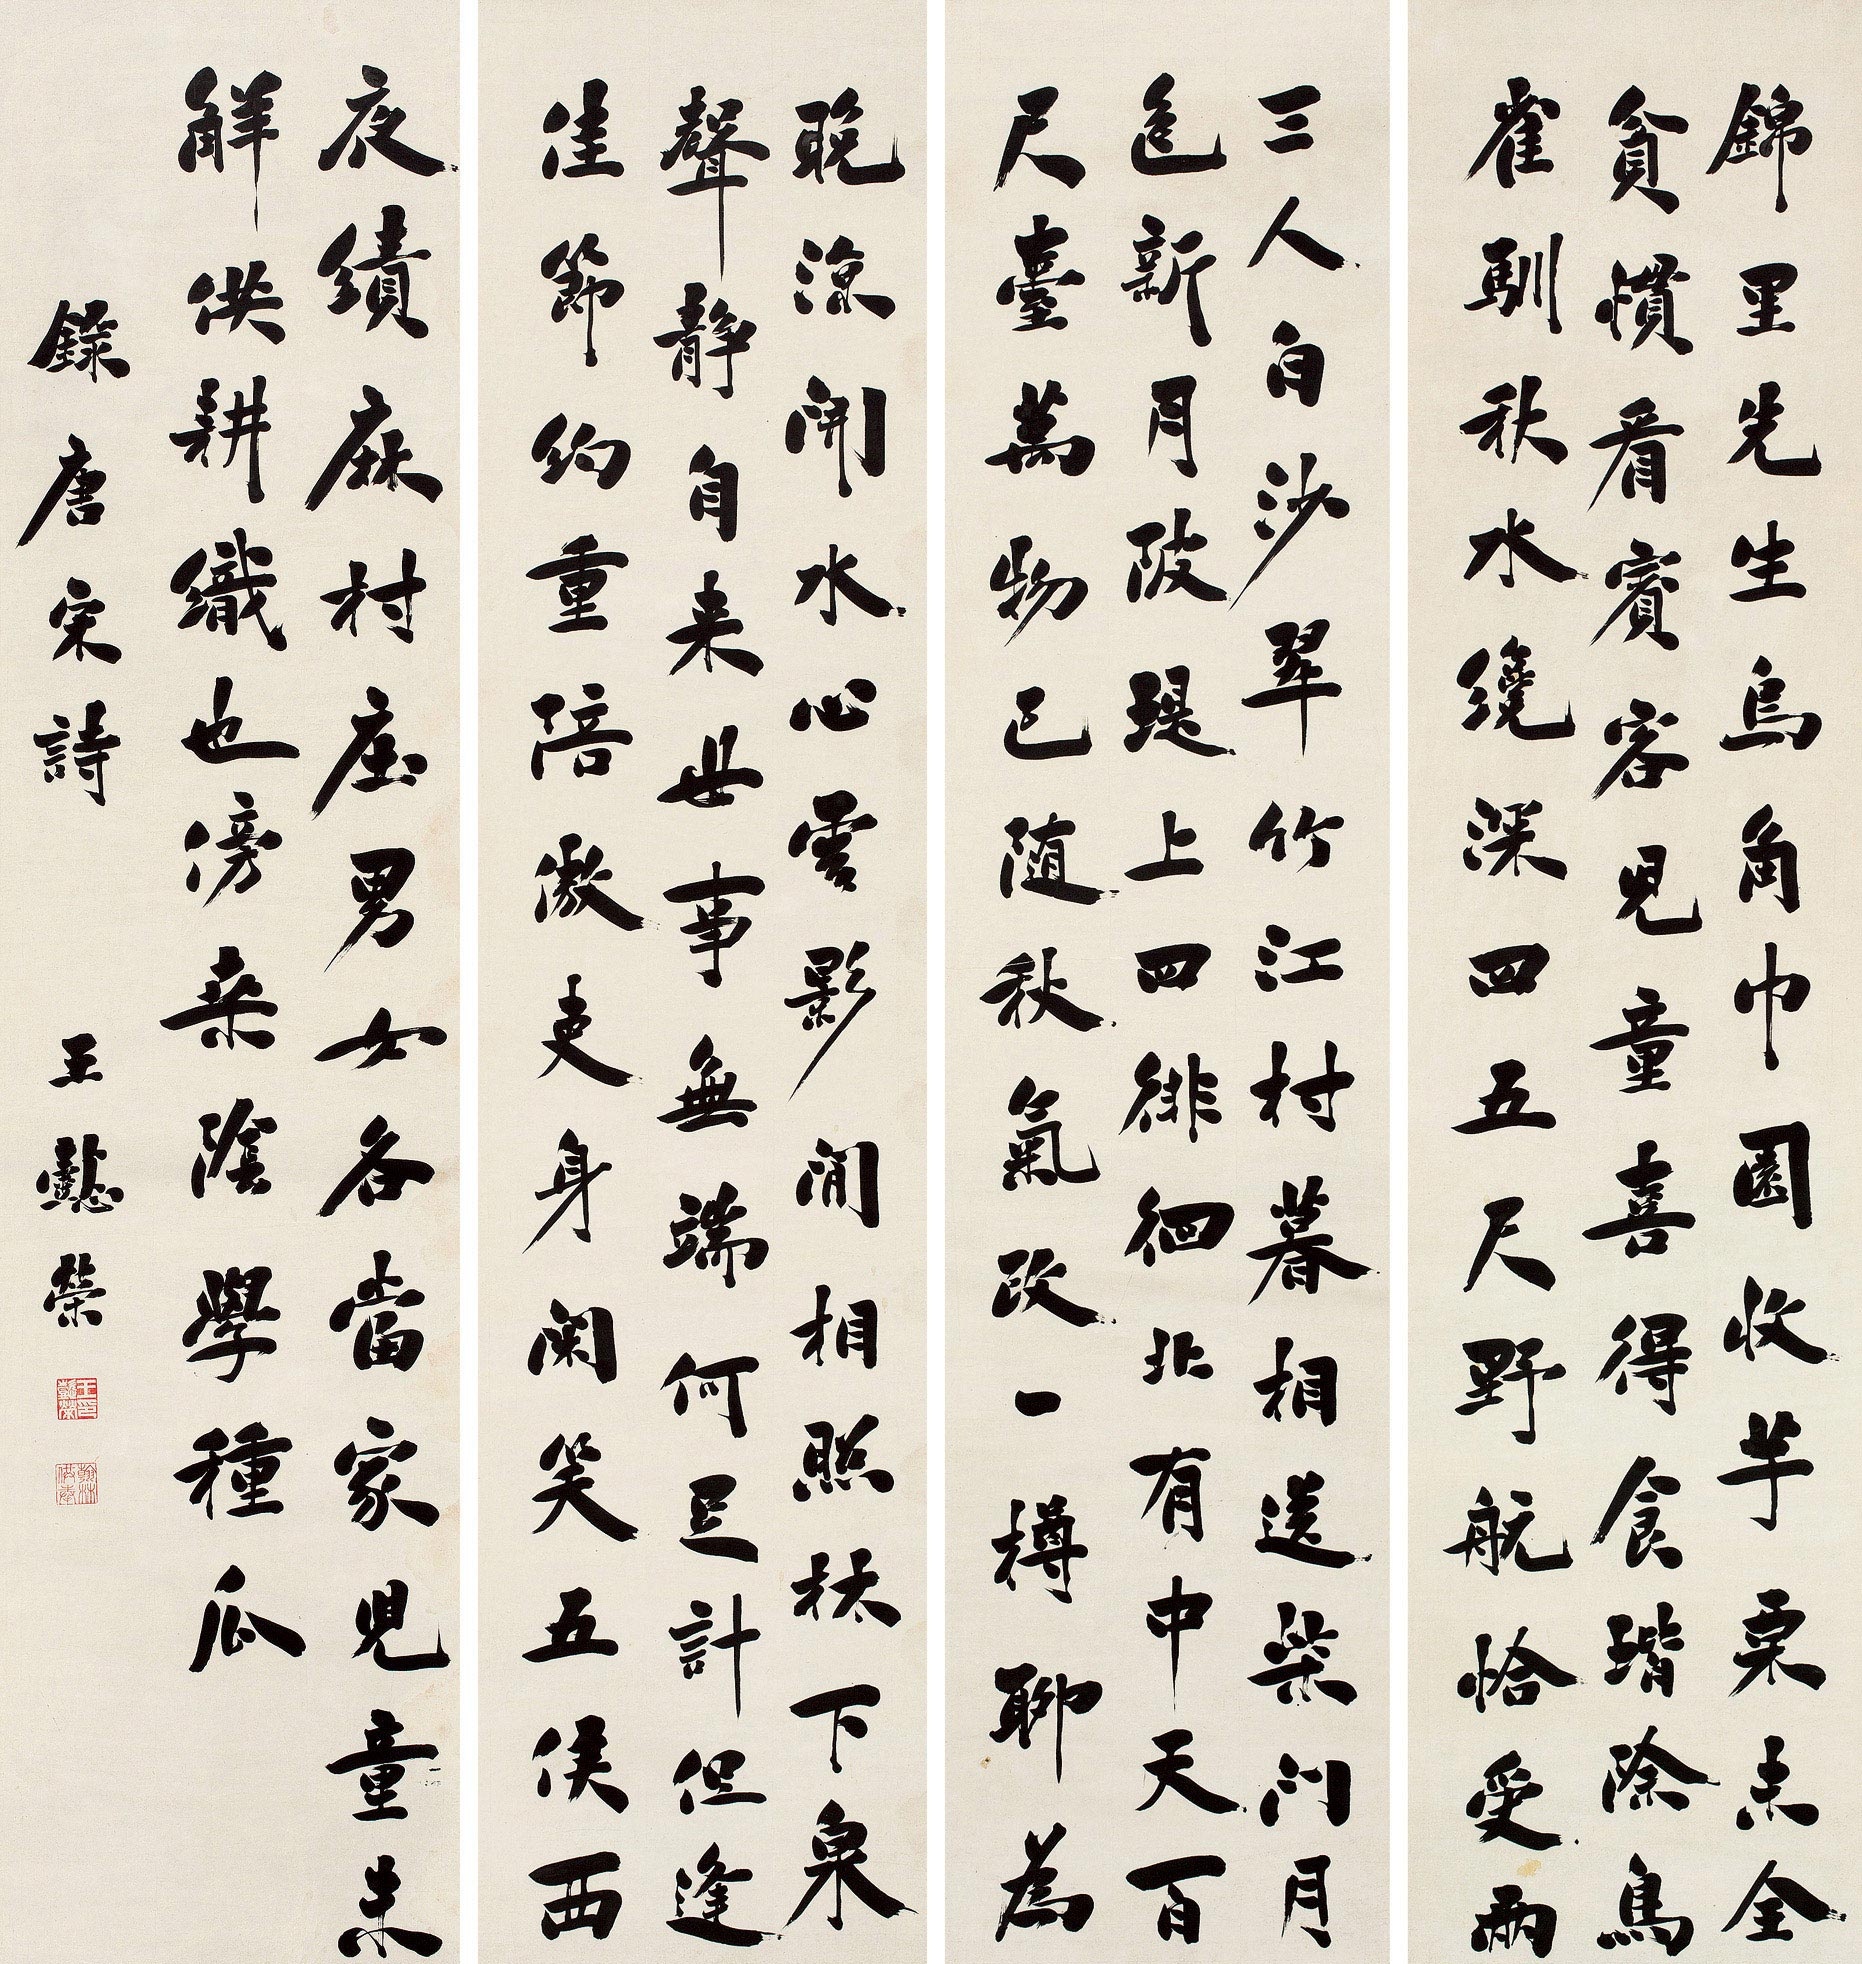 錦里先生烏角巾園收芋栗未全
貧慣看賓客児童喜得食堦除鳥
雀馴秋水纔深四五尺野航恰受兩
三人白沙翠竹江村暮相送柴門月
色新月陂堤上四徘徊北有中天百
尺臺萬物已随秋氣改一樽聊為
晚涼開水心雲影閒相照林下泉
聲靜自来世事無端何足計但逢
佳節約重陪傲吏身閑笑五侯西
夜績麻村庄男女各當家児童未
解供耕織也傍桑陰學種瓜
錄唐宋詩 王懿榮
王懿榮印
翰林供奉